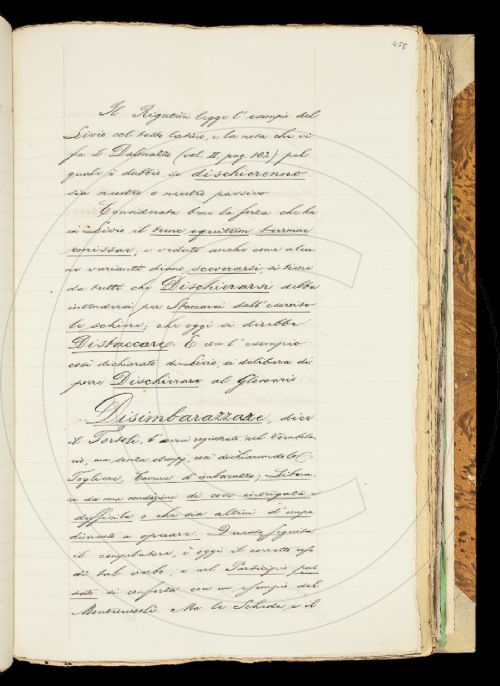 455
Il Rigutini legge l'esempio del
Livio col testo latino, e la nota che vi
fa il Dalmazzo (vol. II, pag. 102) pel
quale è dubbio se dischieronno
sia neutro o neutro passivo.
Considerata bene la forza che ha
in Livio il tunc equitum turmae
emissae, e veduto anche come alcu-
ne varianti diano scoverarsi, si tiene
da tutti che Dischierarsi debba
intendersi per Staccarsi dall'esercito
le schiere; che oggi si direbbe
Distaccare. E con l'esempio
così dichiarato di Livio, si delibera di
porre Dischierare al Glossario.
Disimbarazzare, dice
il Tortoli, l'avrei registrato nel Vocabola-
rio, ma senza esempj, così dichiarandolo:
Togliere, Cavare d'imbarazzo; Libera-
re da una condizione di cose intrigata e
difficile e che sia altrui d'impe-
dimento a operare. Questo, seguita
il compilatore, è oggi il corretto uso
di tal verbo, e nel Participio pas-
sato si conforta con un esempio del
Montecuccoli. Ma le Schede, e il